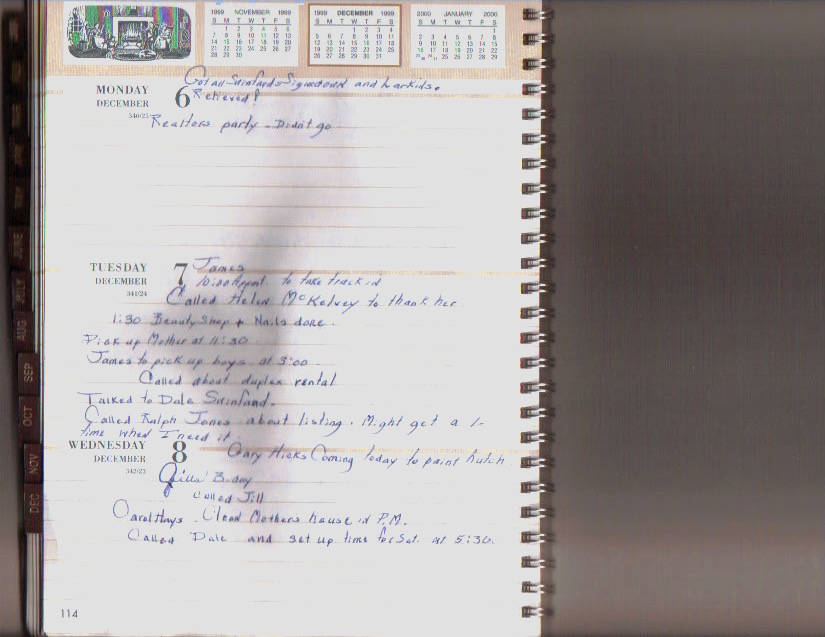 1999 NOVEMBER 1999
S M T W T F S
1 2 3 4 5 6
7 8 9 10 11 12 13
14 15 16 17 18 19 20
21 22 23 24 25 26 27
28 29 30
1999 DECEMBER 1999
S M T W T F S
1 2 3 4
5 6 7 8 9 10 11
12 13 14 15 16 17 18
19 20 21 22 23 24 25
26 27 28 29 30 31
2000 JANUARY 2000
S M T W T F S
1
2 3 4 5 6 7 8
9 10 11 12 13 14 15
16 17 18 19 20 21 22
23 24 25 26 27 28 29
30 31
Got all Sainfords Signs down and
Relieved!
MONDAY 6
DECEMBER
340/25
Realtors party - Didn't go
TUESDAY 7
DECEMBER
341/24
James
10:00 Appmt. to take truck in
Called Helen McKelvey to thank her.
1:30 Beauty Shop + Nails done.
Pick up Mother at 11:30
James to pick up boys at 3:00
Called about duplex rental
Talked to Dale Sainford.
Called Ralph Jones about listing. Might get a 1-
time when I need it.
WEDNESDAY 8
DECEMBER
342/23
Gary Hicks Coming today to paint hutch
B.day
Called Jill
Carol Hays - Clean Mothers house in P.M.
Called Dale and set up time for Sat. at 5:30.
JUNE
JULY
AUG
SEP
OCT
NOV
DEC
114